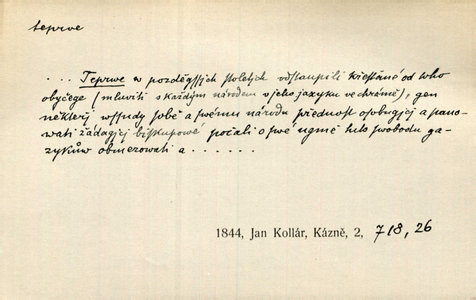 teprve
... Teprwe w pozděgssjch stoletjch odstaupili křesťané od toho
obyčege (mluwiti s každým národem w jeho jazyku ve chrámě), gen
někteřj wssudy sobě a swému národu přednost osobugjcj a pano-
wati žádagjcj biskupowé počali o swé ugmě tuto swobodu ga-
zyků obmezowati a ......
1844, Jan Kollár, Kázně, 2, 718, 26